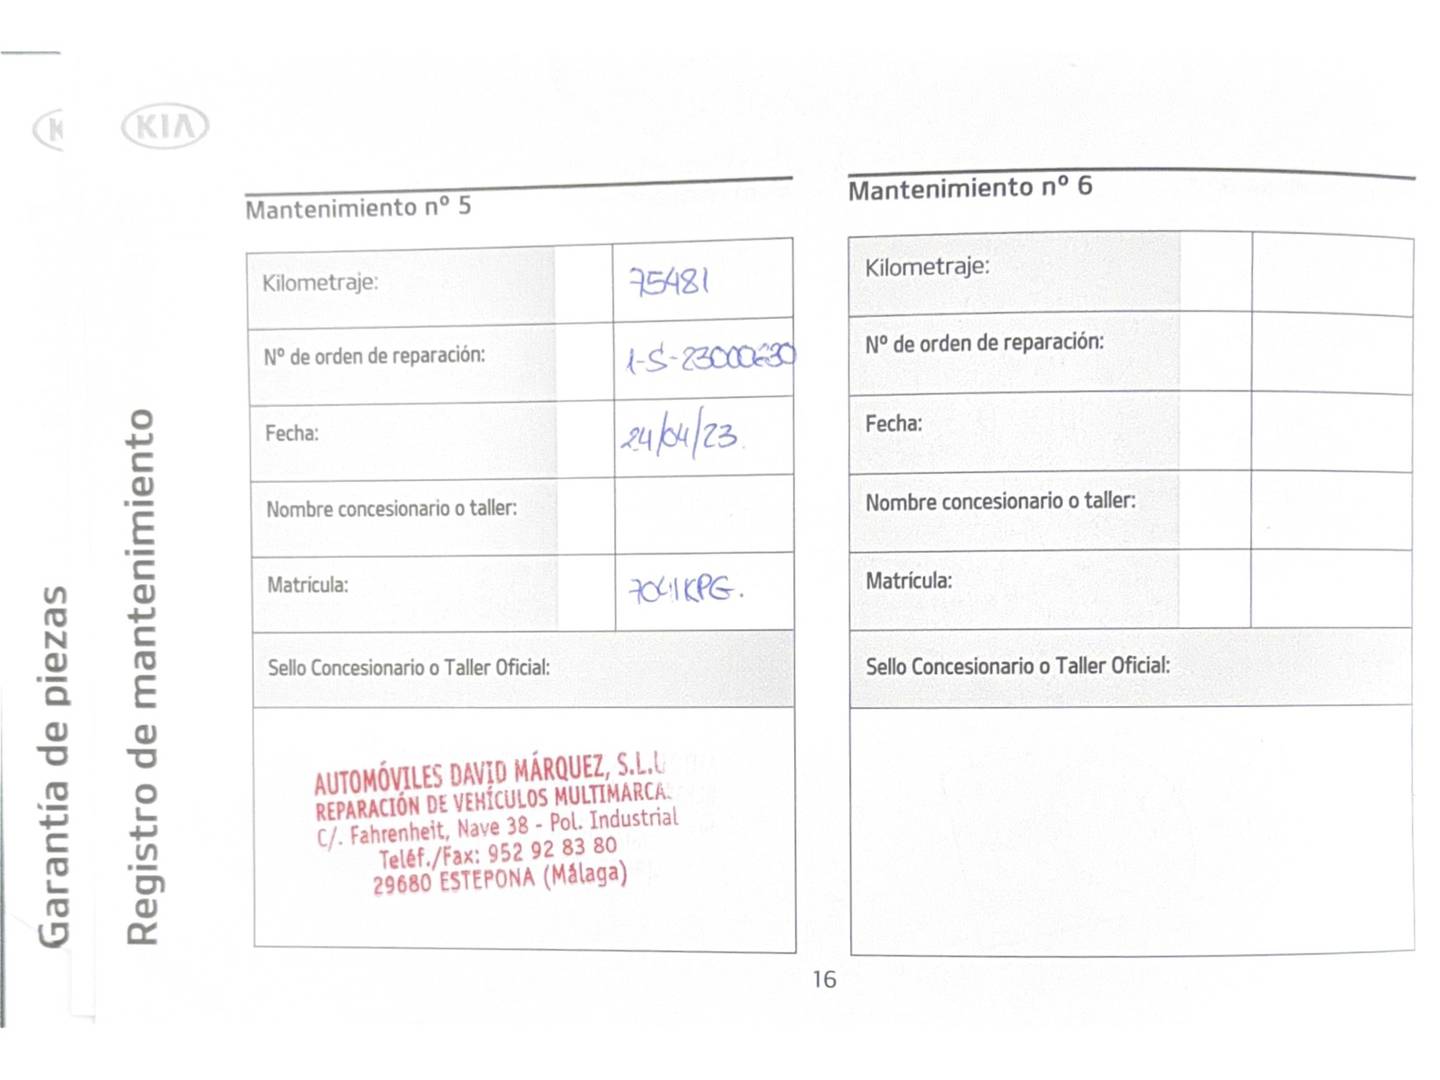 KIA
Garantía de piezas
Registro de mantenimiento
Mantenimiento nº 5
Kilometraje: 75481
Nº de orden de reparación: 1-S-23000630
Fecha: 24/04/23
Nombre concesionario o taller:
Matrícula: 7041KPG.
Sello Concesionario o Taller Oficial:
AUTOMÓVILES DAVID MÁRQUEZ, S.L.U
REPARACIÓN DE VEHÍCULOS MULTIMARCA
C/. Fahrenheit, Nave 38 - Pol. Industrial
Teléf./Fax: 952 92 83 80
29680 ESTEPONA (Málaga)
Mantenimiento nº 6
Kilometraje:
Nº de orden de reparación:
Fecha:
Nombre concesionario o taller:
Matrícula:
Sello Concesionario o Taller Oficial:
16